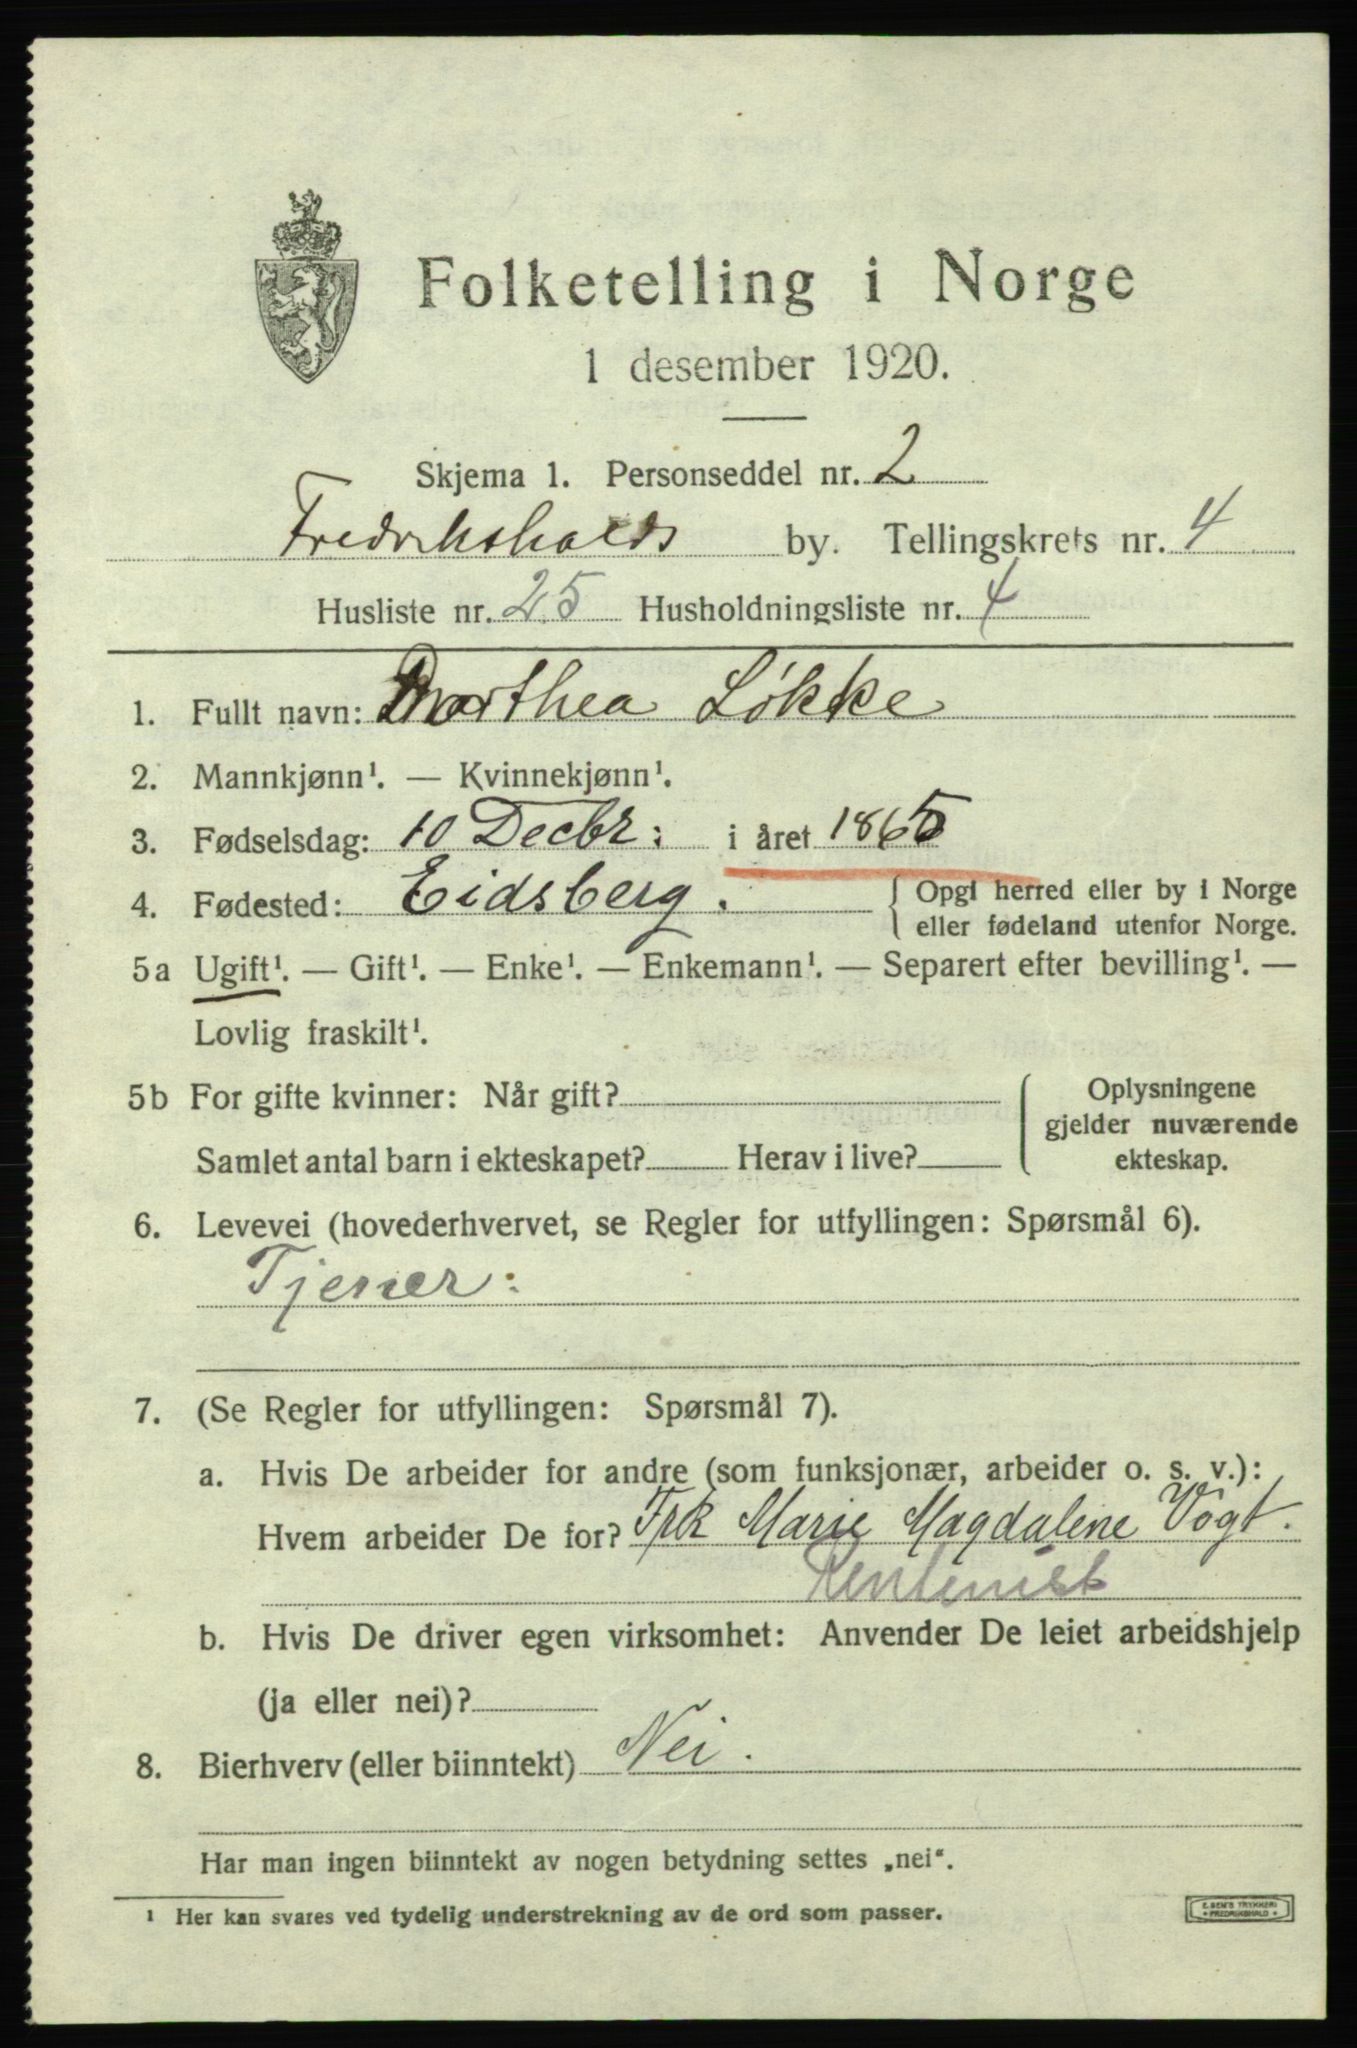 Folketelling i Norge
1 desember 1920.
Skjema 1. Personseddel nr. 2
Fredrikshalds by. Tellingskrets nr. 4
Husliste nr. 25 Husholdningsliste nr. 4
1. Fullt navn: Dorthea Løkke
2. Mannkjønn¹. — Kvinnekjønn¹.
3. Fødselsdag: 10 Decbr: i året 1865
4. Fødested: Eidsberg. { Opgi herred eller by i Norge
eller fødeland utenfor Norge.
5a Ugift¹. — Gift¹. — Enke¹. — Enkemann¹. — Separert efter bevilling¹. —
Lovlig fraskilt¹.
5b For gifte kvinner: Når gift? Oplysningene
gjelder nuværende
Samlet antal barn i ekteskapet? Herav i live? ekteskap.
6. Levevei (hovederhvervet, se Regler for utfyllingen: Spørsmål 6).
Tjener:
7. (Se Regler for utfyllingen: Spørsmål 7).
a. Hvis De arbeider for andre (som funksjonær, arbeider o. s. v.):
Hvem arbeider De for? Frk Marie Magdalene Vogt.
Rentenist
b. Hvis De driver egen virksomhet: Anvender De leiet arbeidshjelp
(ja eller nei)?
8. Bierhverv (eller biinntekt) Nei.
Har man ingen biinntekt av nogen betydning settes „nei“.
¹ Her kan svares ved tydelig understrekning av de ord som passer.
E. SEM'S TRYKKERI
• FREDRIKSHALD •